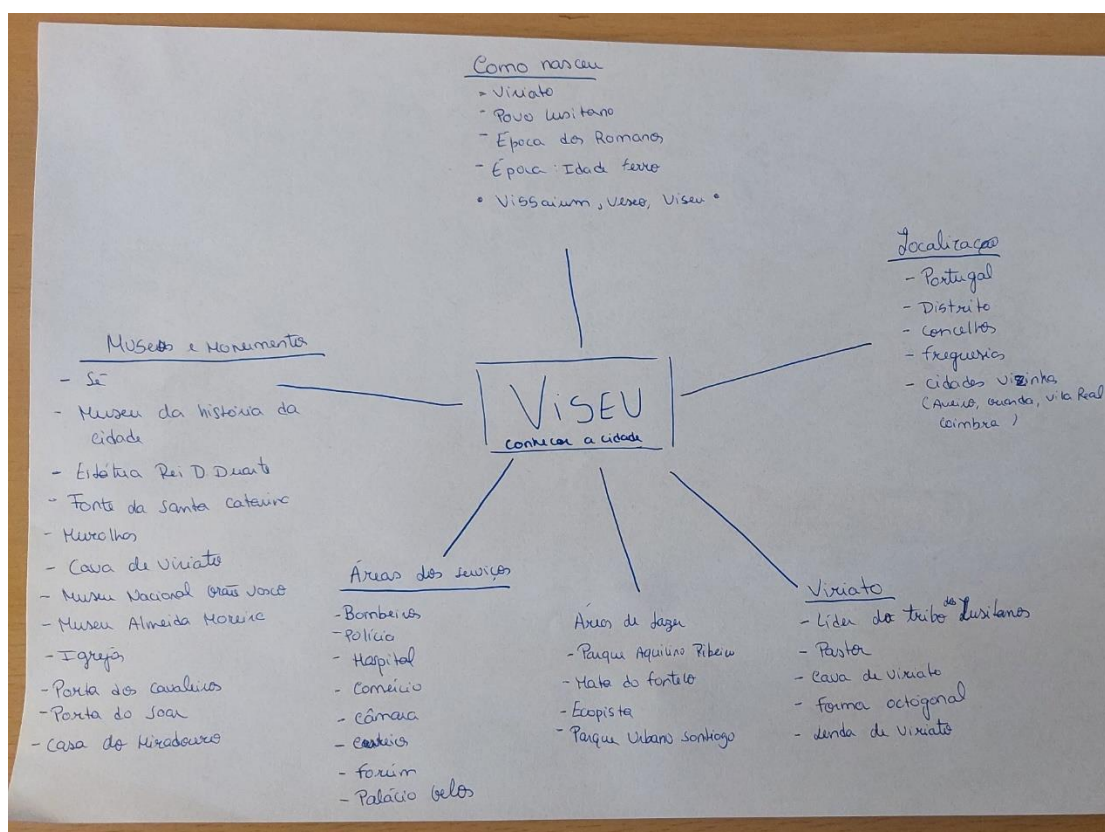 Como nasceu
- Viriato
- Povo Lusitano
- Época dos Romanos
- Época: Idade ferro
• Vissaium, Veseo, Viseu •
Localização
- Portugal
- Distrito
- concelhos
- freguesias
- cidades vizinhas
(Aveiro, Guarda, Vila Real
Coimbra)
VISEU
conhecer a cidade
Museos e Monumentos
- Sé
- Museu da história da
cidade
- Estátua Rei D. Duarte
- Fonte da Santa Catarina
- Muralhas
- Cava de Viriato
- Museu Nacional Grão Vasco
- Museu Almeida Moreira
- Igrejas
- Porta dos Cavaleiros
- Porta do Soar
- Casa do Miradouro
Áreas dos serviços
- Bombeiros
- Polícia
- Hospital
- Comércio
- Câmara
- Correios
- Forúm
- Palácio Gelo
Áreas de Lazer
- Parque Aquilino Ribeiro
- Mata do Fontelo
- Ecopista
- Parque Urbano Santiago
Viriato
- Líder da tribo dos Lusitanos
- Pastor
- Cava de Viriato
- Forma octogonal
- Lenda de Viriato